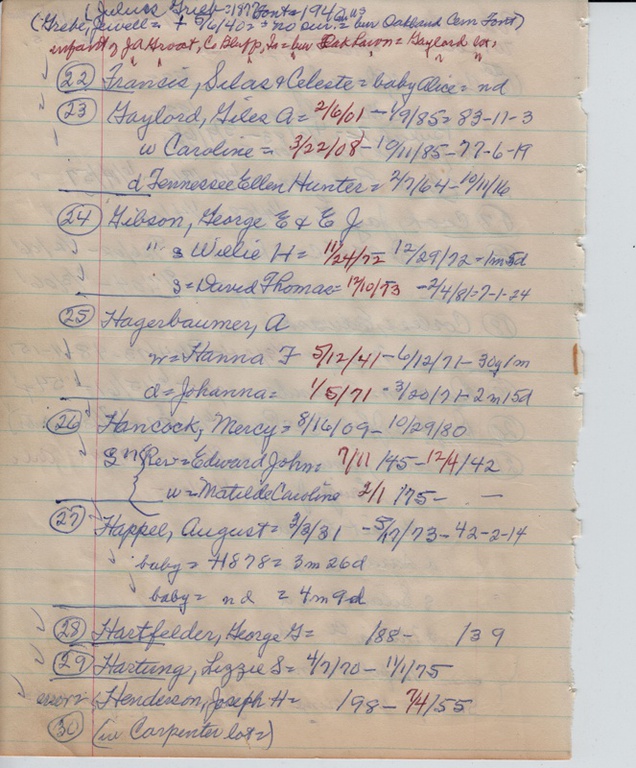 (Julius Grieb = 1877 Font = 194
(Grebe, Jewell = + 5/6/40 = no
infant of JA Groat, C Blupp, So = bur Oak Lawn = Gaylord lot,
(22) Francis, Silas & Celeste = baby Alice = nd
(23) Gaylord, Giles A = 2/6/01 - 1/9/85 = 83-11-3
w Caroline = 3/22/08 - 10/11/85 - 77-6-19
d Tennessee Ellen Hunter = 2/7/64 - 10/11/16
(24) Gibson, George E & E J
" s Willie H = 11/24/72 12/29/72 = 1m5d
s = David Thomas = 12/10/73 - 2/4/81 = 7-1-24
(25) Hagerbaumer, A
w = Hanna F 5/12/41 - 6/12/71 - 30y1m
d = Johanna = 1/5/71 - 3/20/71 - 2m15d
(26) Hancock, Mercy = 8/16/09 - 10/29/80
Rev = Edward John = 7/11/45 - 12/4/42
w = Matilde Caroline 2/1/75 - —
(27) Happel, August = 3/3/31 - 5/17/73 - 42-2-14
baby = H878 = 3m26d
baby = nd = 4m9d
(28) Hartfelder, George G = /88 - /39
(29) Hartung, Lizzie S = 4/7/70 - 11/1/75
error = (Henderson, Joseph H = 198 - 7/4/55
(30) (in Carpenter lot =)